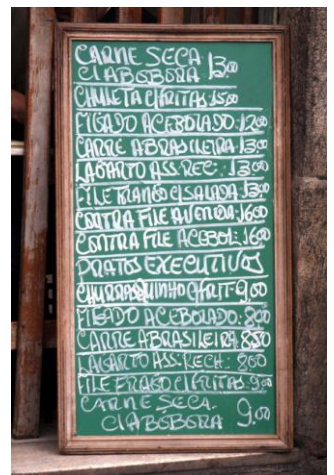 CARNE SECA 13,00
C/ABOBORA
CHULETA C/FRITAS: 15,00
FIGADO ACEBOLADO: 12,00
CARRE A BRASILEIRA 13,00
LAGARTO ASS. REC: 13,00
FILE FRANGO C/SALADA 13,00
CONTRA FILE AVENIDA: 16,00
CONTRA FILE ACEBOL: 16,00
PRATOS EXECUTIVOS
CHURRASQUINHO C/FRIT= 9,00
FIGADO ACEBOLADO: 8,00
CARRE A BRASILEIRA: 8,50
LAGARTO ASS: RECH: 8,00
FILE FRAGO C/FRITAS 9,00
CARNE SECA. 9,00
C/ABOBORA